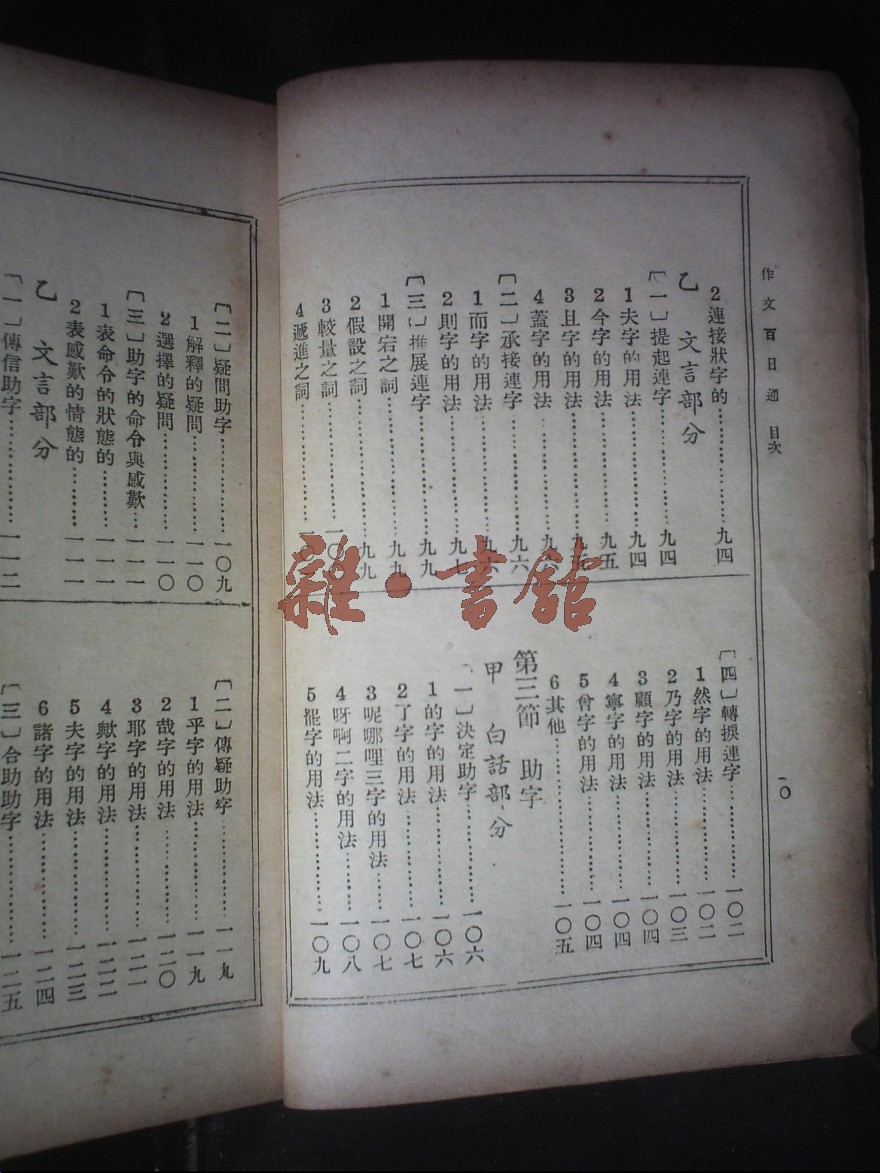 作文百日通 目次
一〇
2連接狀字的…………九四
乙 文言部分
〔一〕提起連字…………九四
1夫字的用法…………九四
2今字的用法…………九五
3且字的用法…………九五
4蓋字的用法…………九六
〔二〕承接連字…………九六
1而字的用法…………九六
2則字的用法…………九七
〔三〕推展連字…………九九
1開宕之詞…………九九
2假設之詞…………九九
3較量之詞…………一〇
4遞進之詞…………一〇
〔四〕轉捩連字…………一〇二
1然字的用法…………一〇二
2乃字的用法…………一〇三
3顧字的用法…………一〇四
4寧字的用法…………一〇四
5曾字的用法…………一〇四
6其他…………一〇五
第三節 助字
甲 白話部分
〔一〕決定助字…………一〇六
1的字的用法…………一〇六
2了字的用法…………一〇七
3呢哪哩三字的用法…………一〇七
4呀啊二字的用法…………一〇八
5罷字的用法…………一〇九
〔二〕疑問助字…………一〇九
1解釋的疑問…………一一〇
2選擇的疑問…………一一〇
〔三〕助字的命令與感歎…一一一
1表命令的狀態的…………一一一
2表感歎的情態的…………一一一
乙 文言部分
〔一〕傳信助字…………一一二
〔二〕傳疑助字…………一一九
1乎字的用法…………一一九
2哉字的用法…………一二〇
3耶字的用法…………一二一
4歟字的用法…………一二二
5夫字的用法…………一二三
6諸字的用法…………一二四
〔三〕合助助字…………一二五
雜·書館